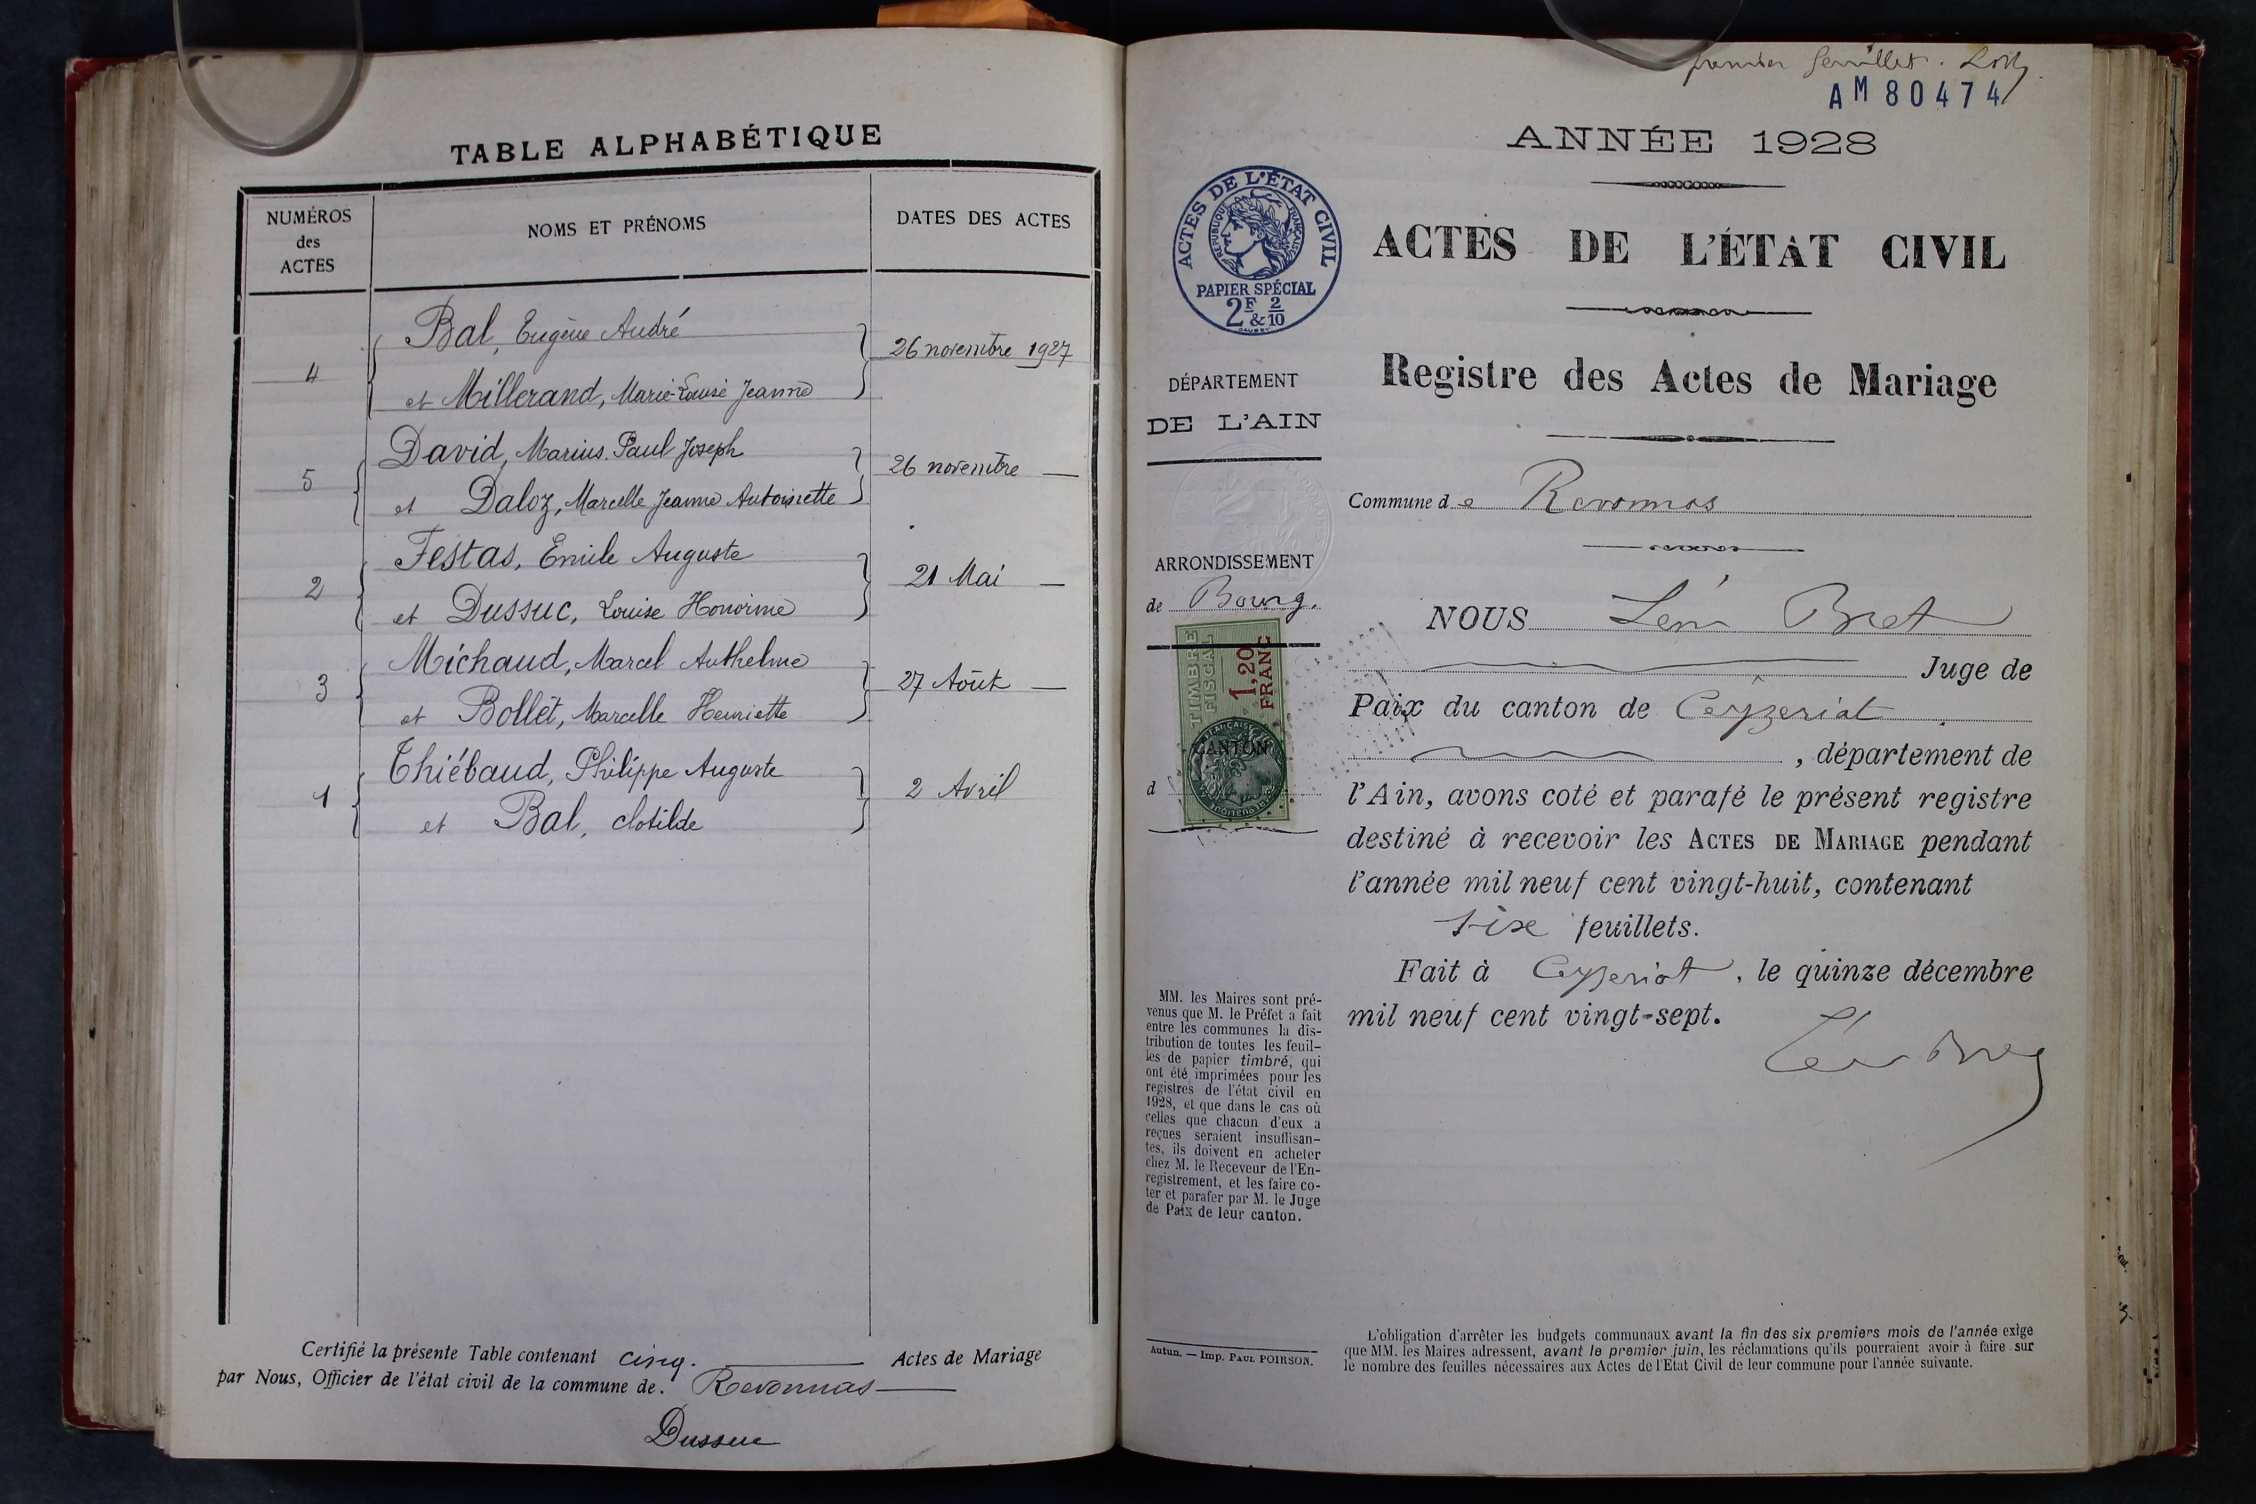 TABLE ALPHABÉTIQUE
NUMÉROS
des
ACTES
NOMS ET PRÉNOMS
DATES DES ACTES
4
Bal, Eugène André
et Millerand, Marie-Louise Jeanne
26 novembre 1927
5
David, Marius Paul Joseph
et Daloz, Marcelle Jeanne Antoinette
26 novembre —
2
Festas, Emile Auguste
et Dussuc, Louise Honorine
21 Mai —
3
Michaud, Marcel Anthelme
et Bollet, Marcelle Henriette
27 Août —
1
Thiébaud, Philippe Auguste
et Bal, clotilde
2 Avril
Certifié la présente Table contenant cinq. Actes de Mariage
par Nous, Officier de l'état civil de la commune de. Revonnas
Dussuc
premier feuillet.
AM 80474
ANNÉE 1928
ACTES DE L'ÉTAT CIVIL
RÉPUBLIQUE FRANÇAISE
PAPIER SPÉCIAL
2F & 2/10
ACTES DE L'ÉTAT CIVIL
Registre des Actes de Mariage
DÉPARTEMENT
DE L'AIN
Commune de Revonnas
ARRONDISSEMENT
de Bourg.
TIMBRE
FISCAL
1,20
FRANC
CANTON
d
NOUS Léon Bret
Juge de
Paix du canton de Ceyzeriat
, département de
l'Ain, avons coté et parafé le présent registre
destiné à recevoir les ACTES DE MARIAGE pendant
l'année mil neuf cent vingt-huit, contenant
six feuillets.
Fait à Ceyzeriat, le quinze décembre
mil neuf cent vingt-sept.
Léon Bret
MM. les Maires sont pré-
venus que M. le Préfet a fait
entre les communes la dis-
tribution de toutes les feuil-
les de papier timbré, qui
ont été imprimées pour les
registres de l'état civil en
1928, et que dans le cas où
celles que chacun d'eux a
reçues seraient insuffisan-
tes, ils doivent en acheter
chez M. le Receveur de l'En-
registrement, et les faire co-
ter et parafer par M. le Juge
de Paix de leur canton.
Autun. — Imp. PAUL POIRSON.
L'obligation d'arrêter les budgets communaux avant la fin des six premiers mois de l'année exige
que MM. les Maires adressent, avant le premier juin, les réclamations qu'ils pourraient avoir à faire sur
le nombre des feuilles nécessaires aux Actes de l'Etat Civil de leur commune pour l'année suivante.